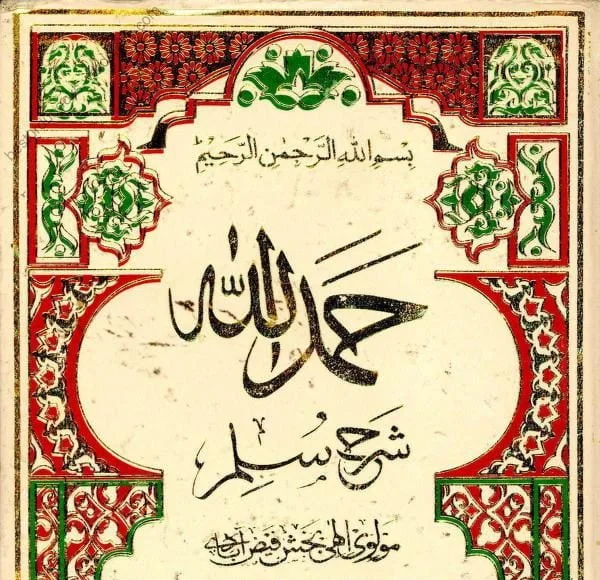 بسم الله الرحمن الرحیم
حمد الله
شرح سلم
مولوی الهی بخش فیض آبادی